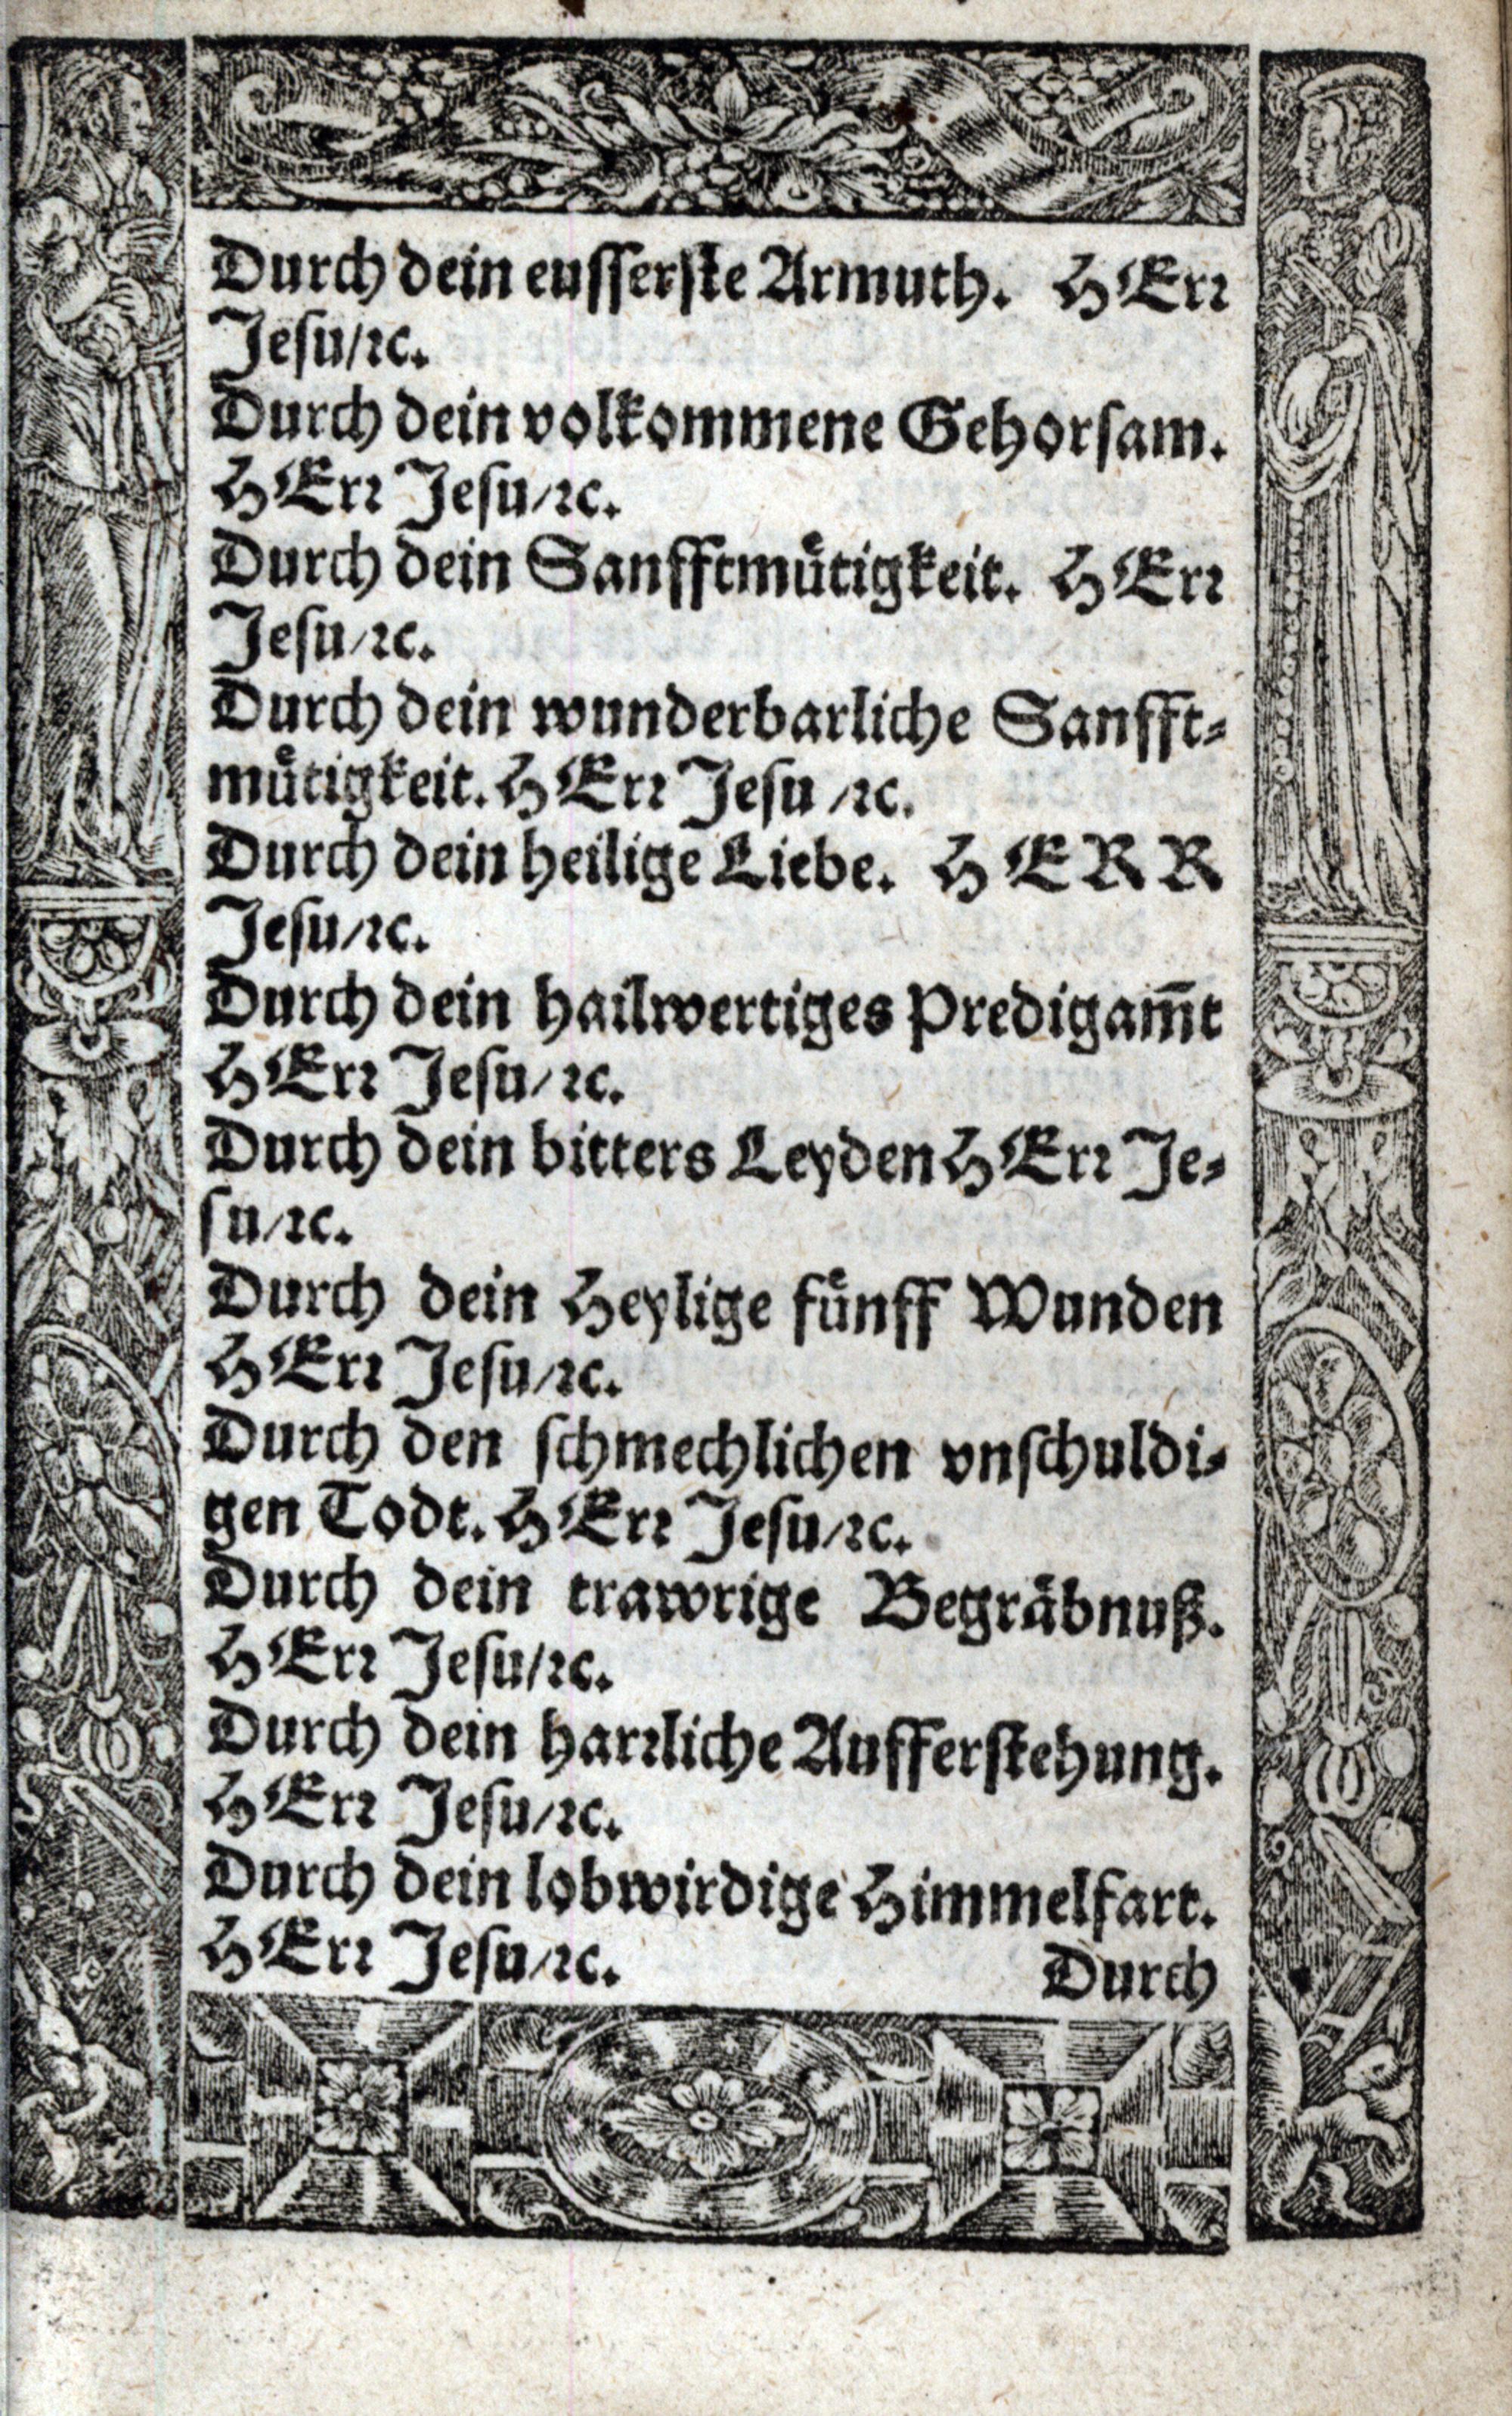 Durch dein eusserste Armuth. HErr
Jesu/ꝛc.
Durch dein volkommene Gehorsam.
HErr Jesu/ꝛc.
Durch dein Sanfftmuͤtigkeit. HErr
Jesu/ꝛc.
Durch dein wunderbarliche Sanfft-
muͤtigkeit. HErr Jesu /ꝛc.
Durch dein heilige Liebe. HERR
Jesu/ꝛc.
Durch dein hailwertiges Predigam̄t
HErr Jesu/ꝛc.
Durch dein bitters Leyden HErr Je-
su/ꝛc.
Durch dein Heylige fuͤnff Wunden
HErr Jesu/ꝛc.
Durch den schmechlichen vnschuldi-
gen Todt. HErr Jesu/ꝛc.
Durch dein trawrige Begraͤbnuß.
HErr Jesu/ꝛc.
Durch dein harrliche Aufferstehung.
HErr Jesu/ꝛc.
Durch dein lobwirdige Himmelfart.
HErr Jesu/ꝛc. Durch